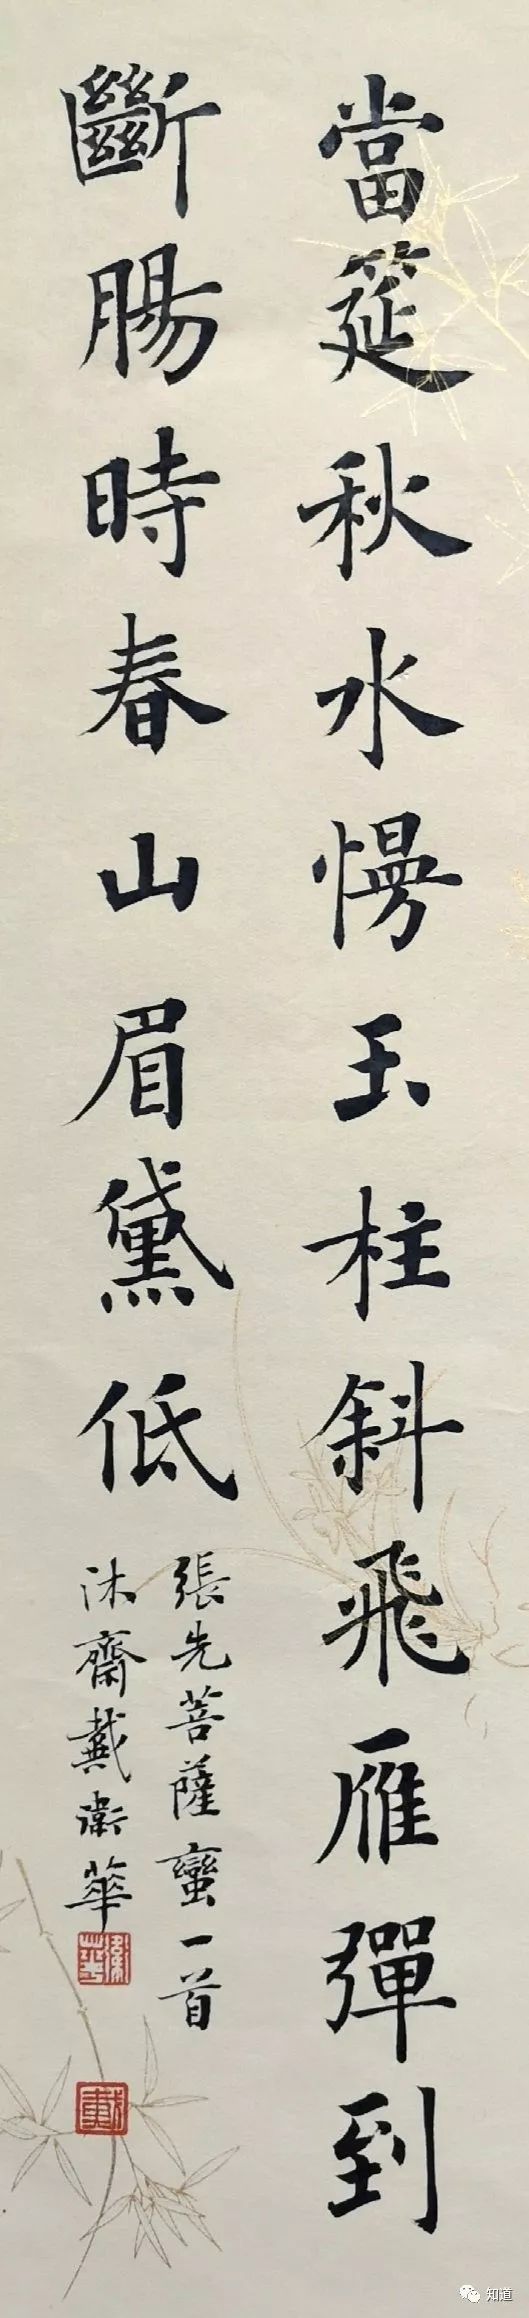 當筵秋水慢玉柱斜飛雁彈到
斷腸時春山眉黛低
張先菩薩蠻一首
沐齋戴衛華
衛華
戴
知道